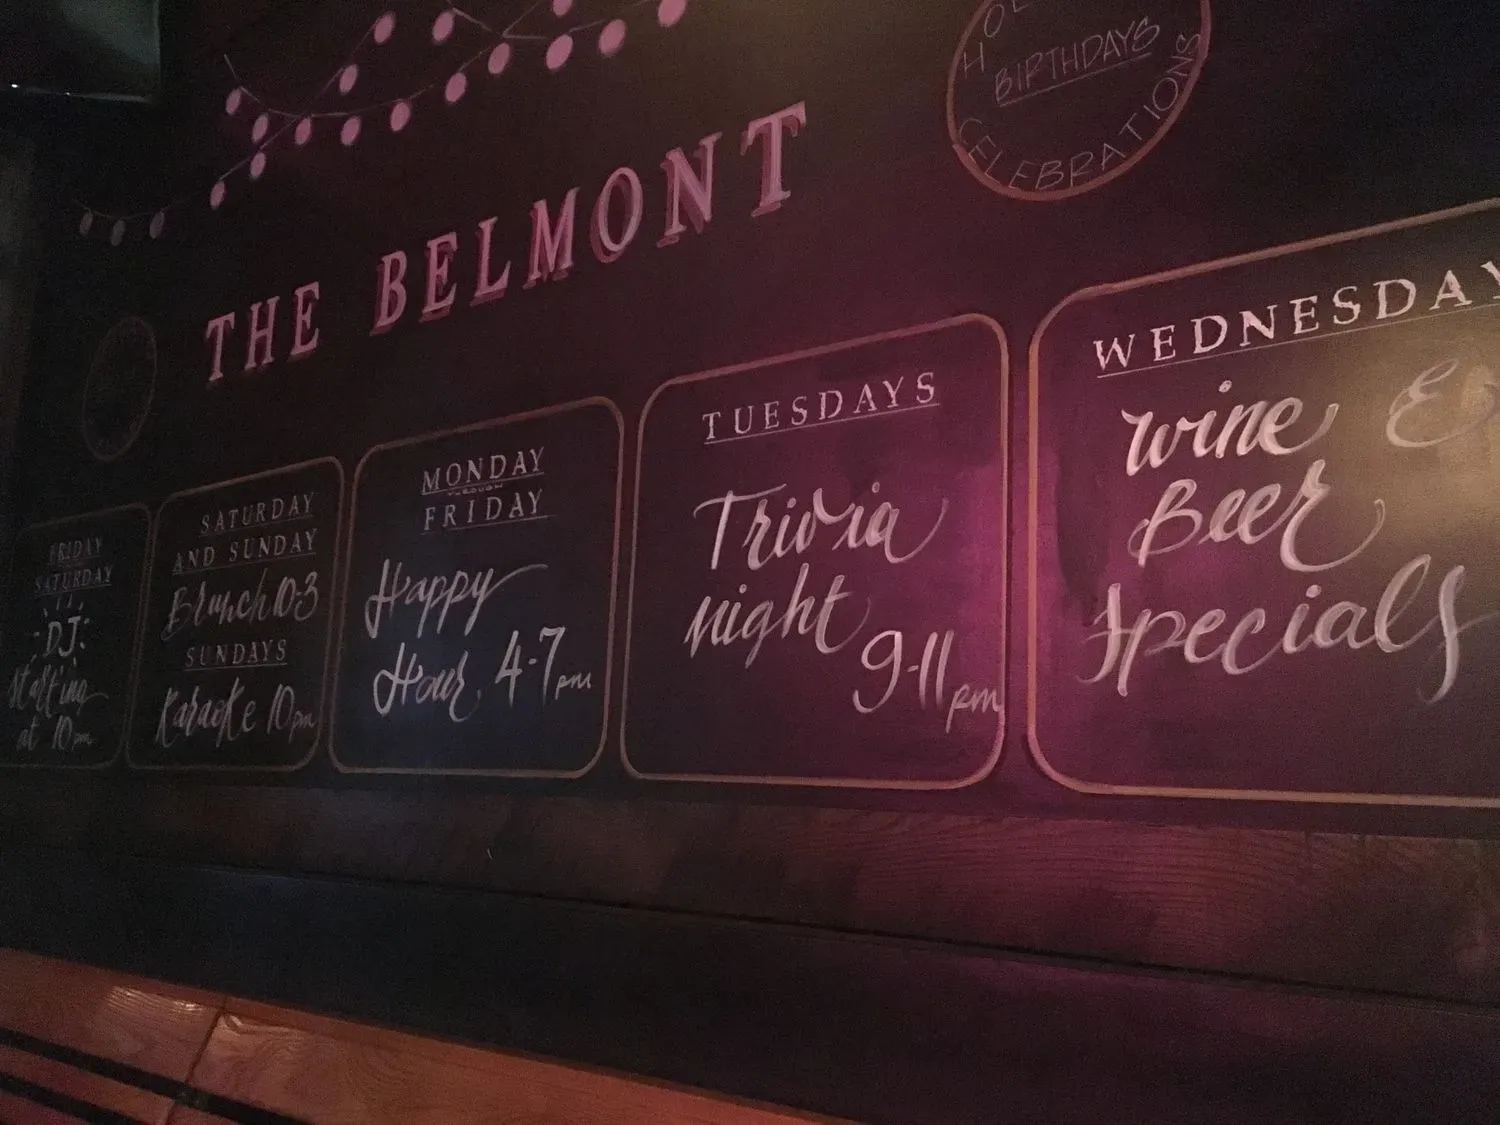 BIRTHDAYS
CELEBRATIONS
THE BELMONT
FRIDAY
SATURDAY
DJ
starting
at 10pm
SATURDAY
AND SUNDAY
Brunch 10-3
SUNDAYS
Karaoke 10pm
MONDAY
THROUGH
FRIDAY
Happy
Hour 4-7pm
TUESDAYS
Trivia
night
9-11pm
WEDNESDAY
wine &
Beer
Specials